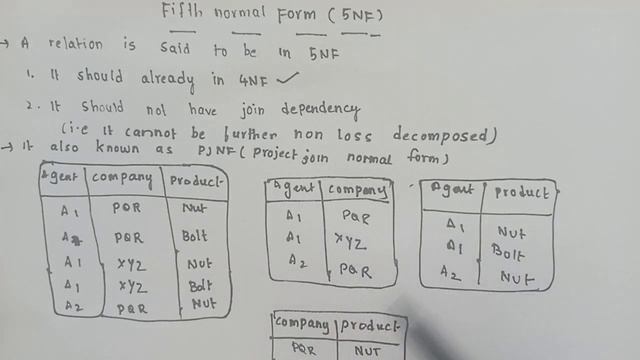 Fifth normal form (5NF)
→ A relation is said to be in 5NF
1. It should already in 4NF ✓
2. It should not have join dependency
(i.e it cannot be further non loss decomposed)
→ It also known as PJNF (Project join normal form)
Agent company product
A1 PQR Nut
PQR Bolt
A1 XYZ Nut
A1 XYZ Bolt
A2 PQR Nut
Agent company
A1 PQR
A1 XYZ
A2 PQR
Agent product
A1 Nut
A1 Bolt
A2 Nut
company product
PQR NUT